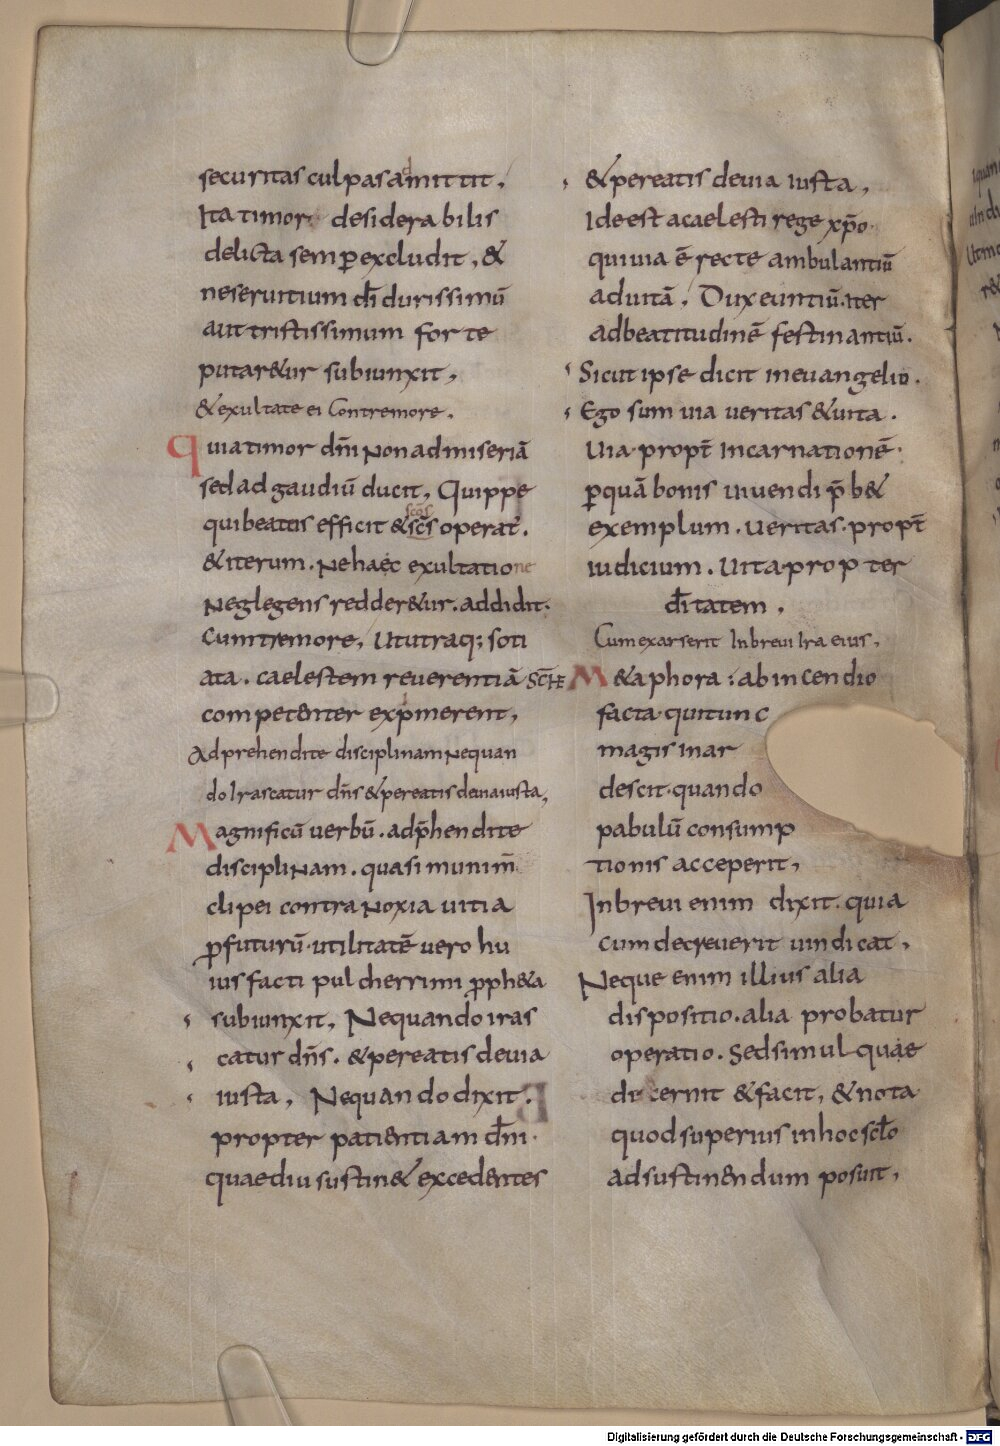 securitas culpas amittit,
Ita timor desiderabilis
delicta semp excludit, &
ne seruitium dī durissimū
aut tristissimum forte
putar&ur subiunxit,
& exultate ei Contremore.
Quia timor dn̄i Non ad miseriā
sed ad gaudiū ducit, Quippe
qui beatus efficit & sc̄s operat̄.
& iterum. Ne haec exultatione
Neglegens redder&ur. addidit.
Cum tremore, Ut utraq; soti
ata. caelestem reuerentiā
competenter exprimerent,
Adprehendite disciplinam Nequan
do Irascatur dn̄s & pereatis deuia iusta,
Magnificū uerbū. adp̄hendite
disciplinam. quasi munim̄
clipei contra Noxia uitia
profuturū utilitatē uero hu
ius facti pulcherrimi proph&a
subiunxit, Nequando iras
catur dn̄s. & pereatis deuia
iusta, Nequando dixit.
propter patientiam dn̄i.
quae diu sustin& excedentes
& pereatis deuia iusta,
Id est a caelesti rege xp̄o.
qui uia ē recte ambulantiū
ad uitā, Dux euntiū. iter
ad beatitudinē festinantiū.
Sicut ipse dicit in euangelio.
Ego sum uia ueritas & uita.
Uia propt̄ Incarnationē.
per quā bonis uiuendi p̄b&
exemplum. ueritas. propt̄
iudicium. Uita propter
dītatem,
Cum exarserit In breui Ira eius,
M&aphora; ab incendio
facta qui tunc
magis inar
descit. quando
pabulū consump
tionis acceperit,
In breui enim dixit. quia
cum decreuerit uindicat,
Neque enim illius alia
dispositio. alia probatur
operatio. Sed simul quae
discernit & facit, & nota
quod superius in hoc sclo
ad sustinendum posuit,
Digitalisierung gefördert durch die Deutsche Forschungsgemeinschaft - DFG